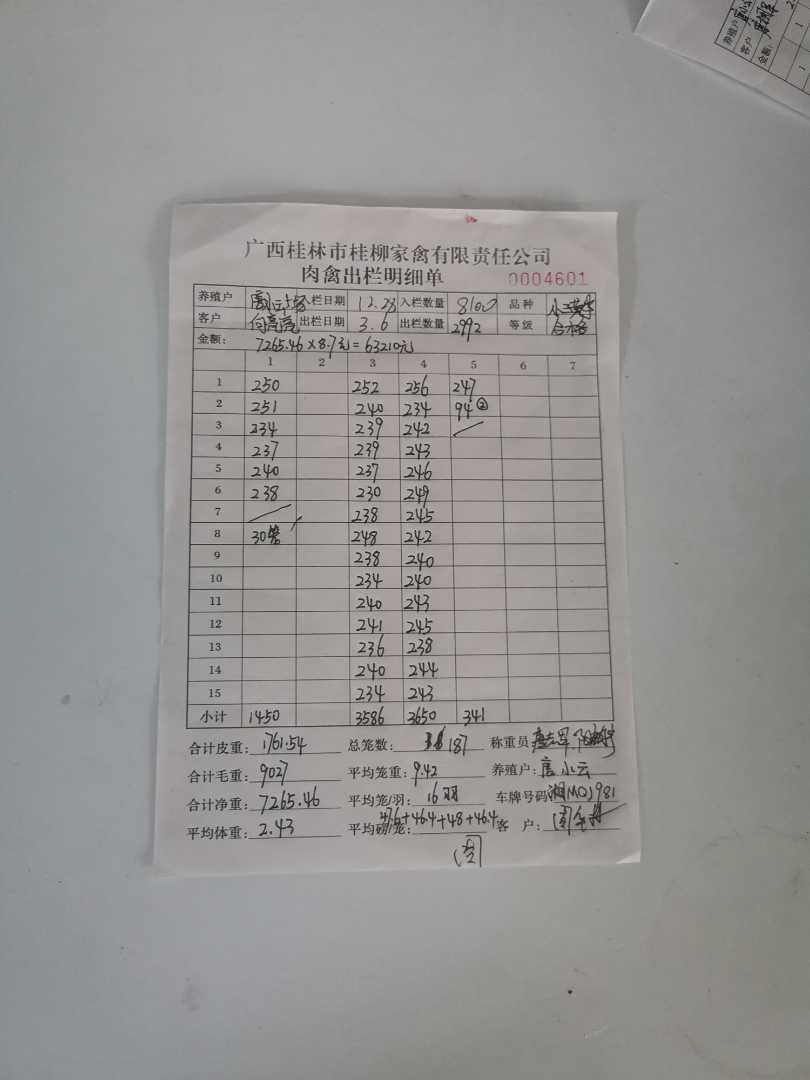 广西桂林市桂柳家禽有限责任公司
肉禽出栏明细单 0004601
养殖户 唐小云 入栏日期 12.28 入栏数量 8100 品种
客户 向亮亮 出栏日期 3.6 出栏数量 2992 等级 合格
金额: 7265.46×8.7元=63210元
1 2 3 4 5 6 7
1 250 252 256 247
2 251 240 234 94②
3 234 239 242
4 237 239 243
5 240 237 246
6 238 230 249
7 238 245
8 30 248 242
9 238 240
10 234 240
11 240 243
12 241 245
13 236 238
14 240 244
15 234 243
小计 1450 3586 3650 341
合计皮重: 1761.54 总笼数: 187 称重员
合计毛重: 9027 平均笼重: 9.42 养殖户: 唐小云
合计净重: 7265.46 平均笼/羽: 16羽 车牌号码 湘M0J981
平均体重: 2.43 平均磅/笼: 47.6+46.4+48+46.4 客 户:
养殖户
客户
金额:
1
1